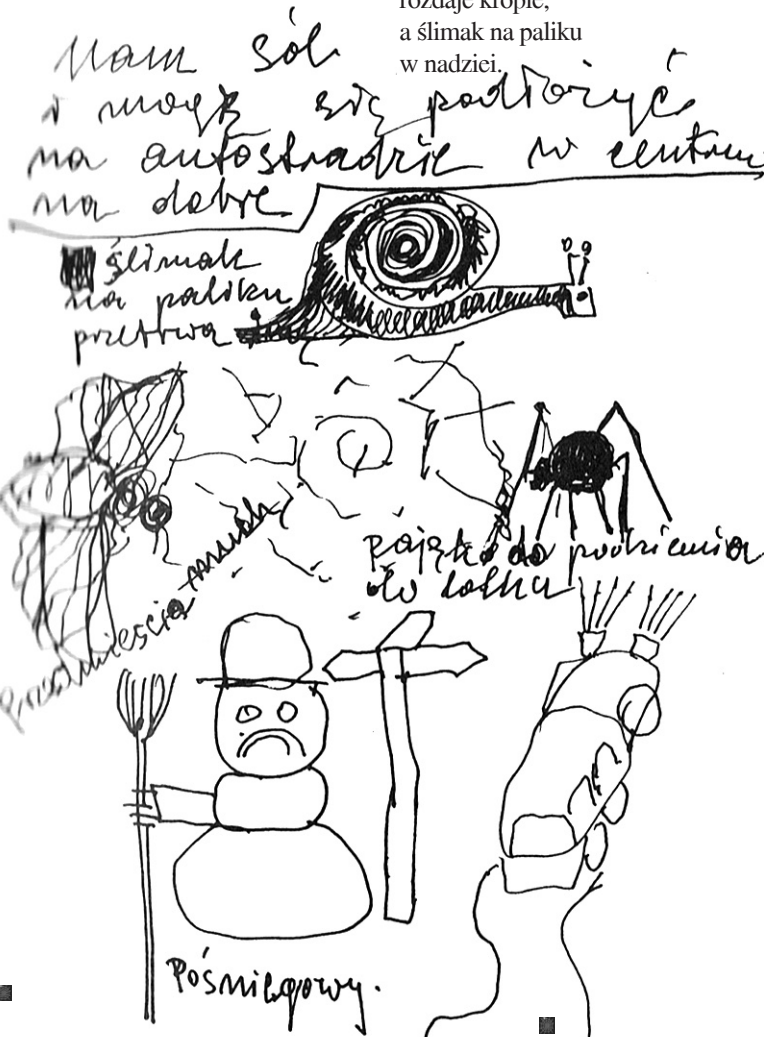 rozdaje krople,
a ślimak na paliku
w nadziei.
Mam sól
i mogę się podłożyć
na autostradzie w centrum
na dobre
ślimak
na paliku
przetrwa
przedmieścia much
pająk do
do
Pośniegowy.